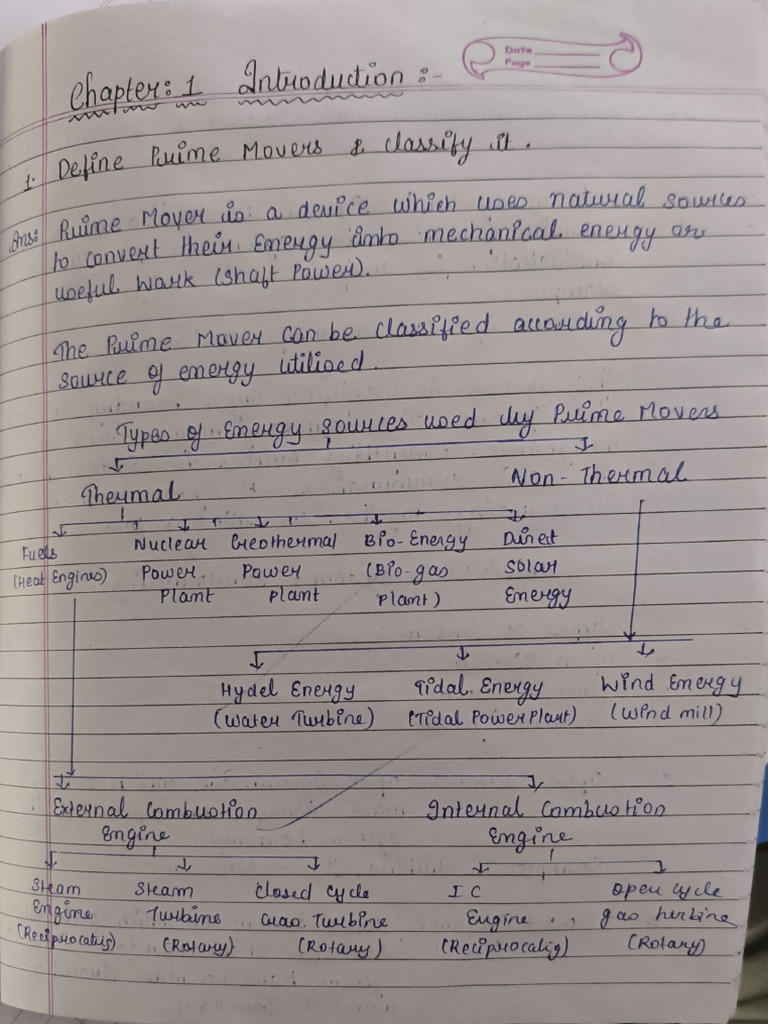 Date
Page
Chapter: 1 Introduction :-
1. Define Prime Movers & classify it.
Ans: Prime Mover is a device which uses natural sources
to convert their Energy into mechanical energy or
useful work (Shaft Power).
The Prime Mover can be classified according to the
source of energy utilised.
Types of Energy sources used by Prime Movers
Thermal Non-Thermal
Fuels Nuclear Geothermal Bio-Energy Direct
(Heat Engines) Power Power (Bio-gas Solar
Plant Plant Plant) Energy
Hydel Energy Tidal Energy Wind Energy
(Water Turbine) (Tidal Power Plant) (Wind mill)
External Combustion Internal Combustion
Engine Engine
Steam Steam Closed Cycle IC open cycle
Engine Turbine Gas Turbine Engine gas turbine
(Reciprocatig) (Rotary) (Rotary) (Reciprocatig) (Rotary)